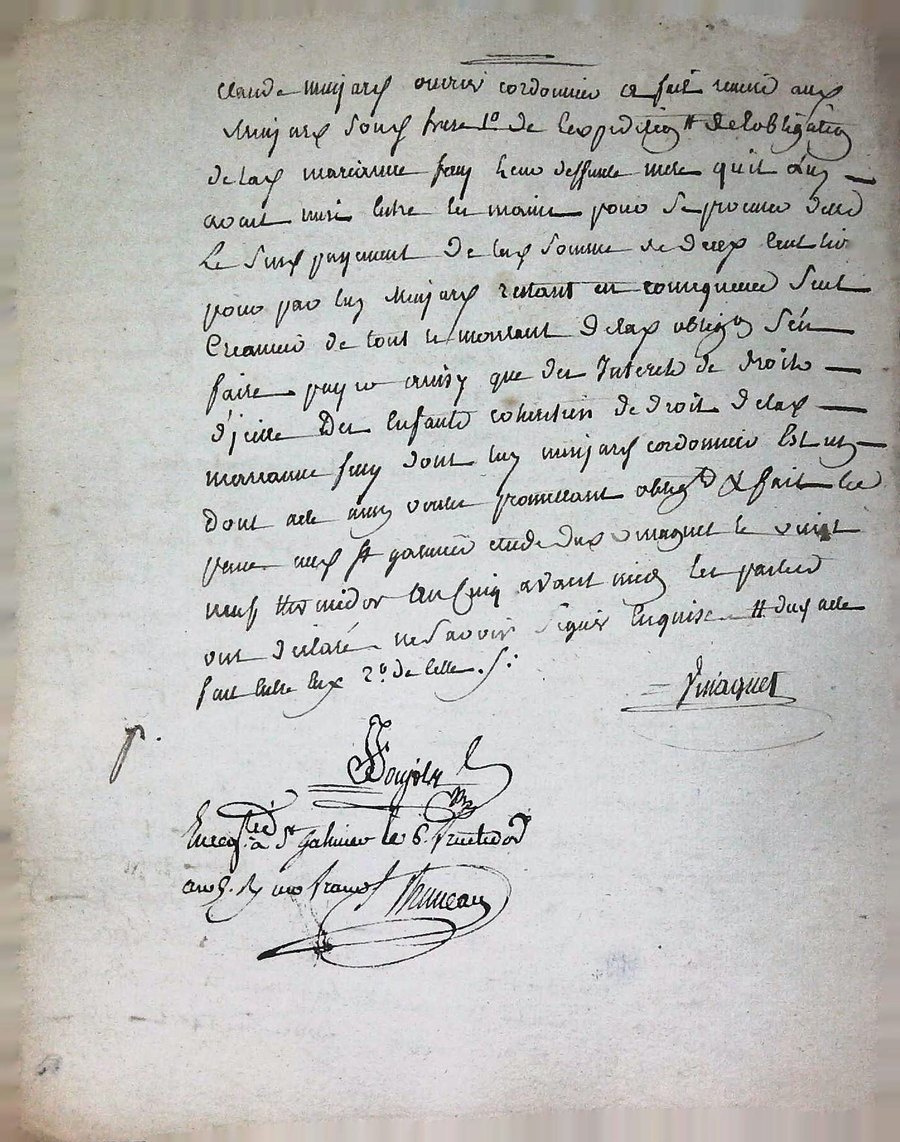 Claude minjard ouvrier cordonnier a fait remis aux
Minjard sond. frere 1o de lexpedition # de lobligation
delad. marianne fay leur deffunte mere quil a
avoit mise entre les mains pour se procurer
Le susd. payement de lad. somme de deux cent liv.
pour par luy Minjard restant en consequence seul
Creancier de tout le montant delad. obligon. sen
faire payer ainsy que des Interets de droits
des Enfants coheritiers de droit delad.
marianne fay dont luy minjard cordonnier Est un
Dont acte ainsy voulu promettant oblig. & fait lu
St galmier etude dud. vmaignet le vint
neuf thermidor an Cinq avant midy les parties
ont declaré ne savoir signer Enquise # dud. acte
fait entre Eux 2o de celle. s:
Vmaignet
Enregistré à St Galmier le 6. fructidor
an 5. R un franc